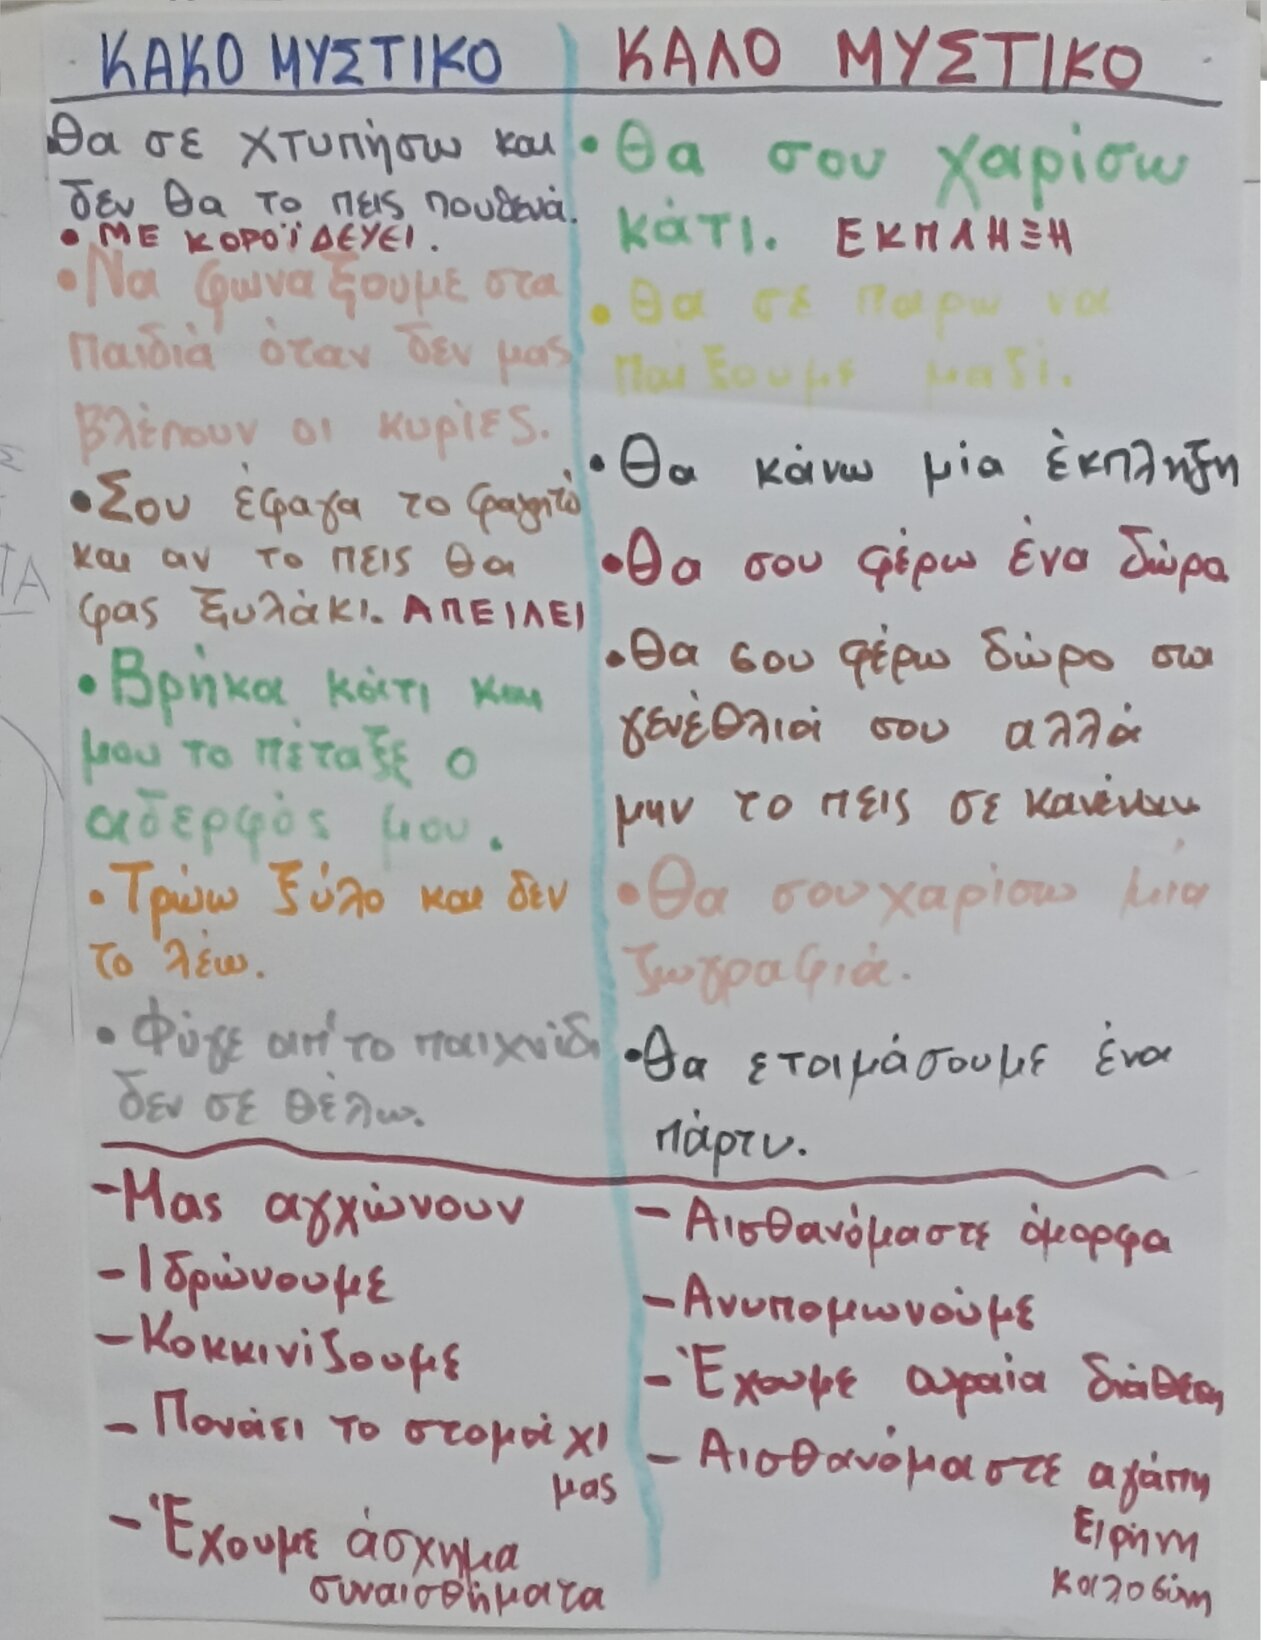 ΚΑΚΟ ΜΥΣΤΙΚΟ
Θα σε χτυπήσω και
δεν θα το πεις πουθενά.
• ΜΕ ΚΟΡΟΪΔΕΥΕΙ.
• Να φωναξουμε στα
παιδιά όταν δεν μας
βλέπουν οι κυρίες.
• Σου έφαγα το φαγητό
και αν το πεις θα
φας ξυλάκι. ΑΠΕΙΛΕΙ
• Βρήκα κάτι και
μου το πέταξε ο
αδερφός μου.
• Τρώω ξύλο και δεν
το λέω.
• Φύγε απ' το παιχνίδι
δεν σε θέλω.
- Μας αγχώνουν
- Ιδρώνουμε
- Κοκκινίζουμε
- Πονάει το στομάχι
μας
- Έχουμε άσχημα
συναισθήματα
ΚΑΛΟ ΜΥΣΤΙΚΟ
• Θα σου χαρίσω
κάτι. ΕΚΠΛΗΞΗ
• Θα σε παρω να
παίξουμε μαζί.
• Θα κάνω μία έκπληξη
• Θα σου φέρω ένα δώρα
• Θα σου φέρω δώρο στα
γενέθλιά σου αλλά
μην το πεις σε κανέναν
• Θα σου χαρίσω μία
ζωγραφιά.
• Θα ετοιμάσουμε ένα
πάρτυ.
- Αισθανόμαστε όμορφα
- Ανυπομωνούμε
- Έχουμε ωραία διάθεση
- Αισθανόμαστε αγάπη
Ειρήνη
καλοσύνη